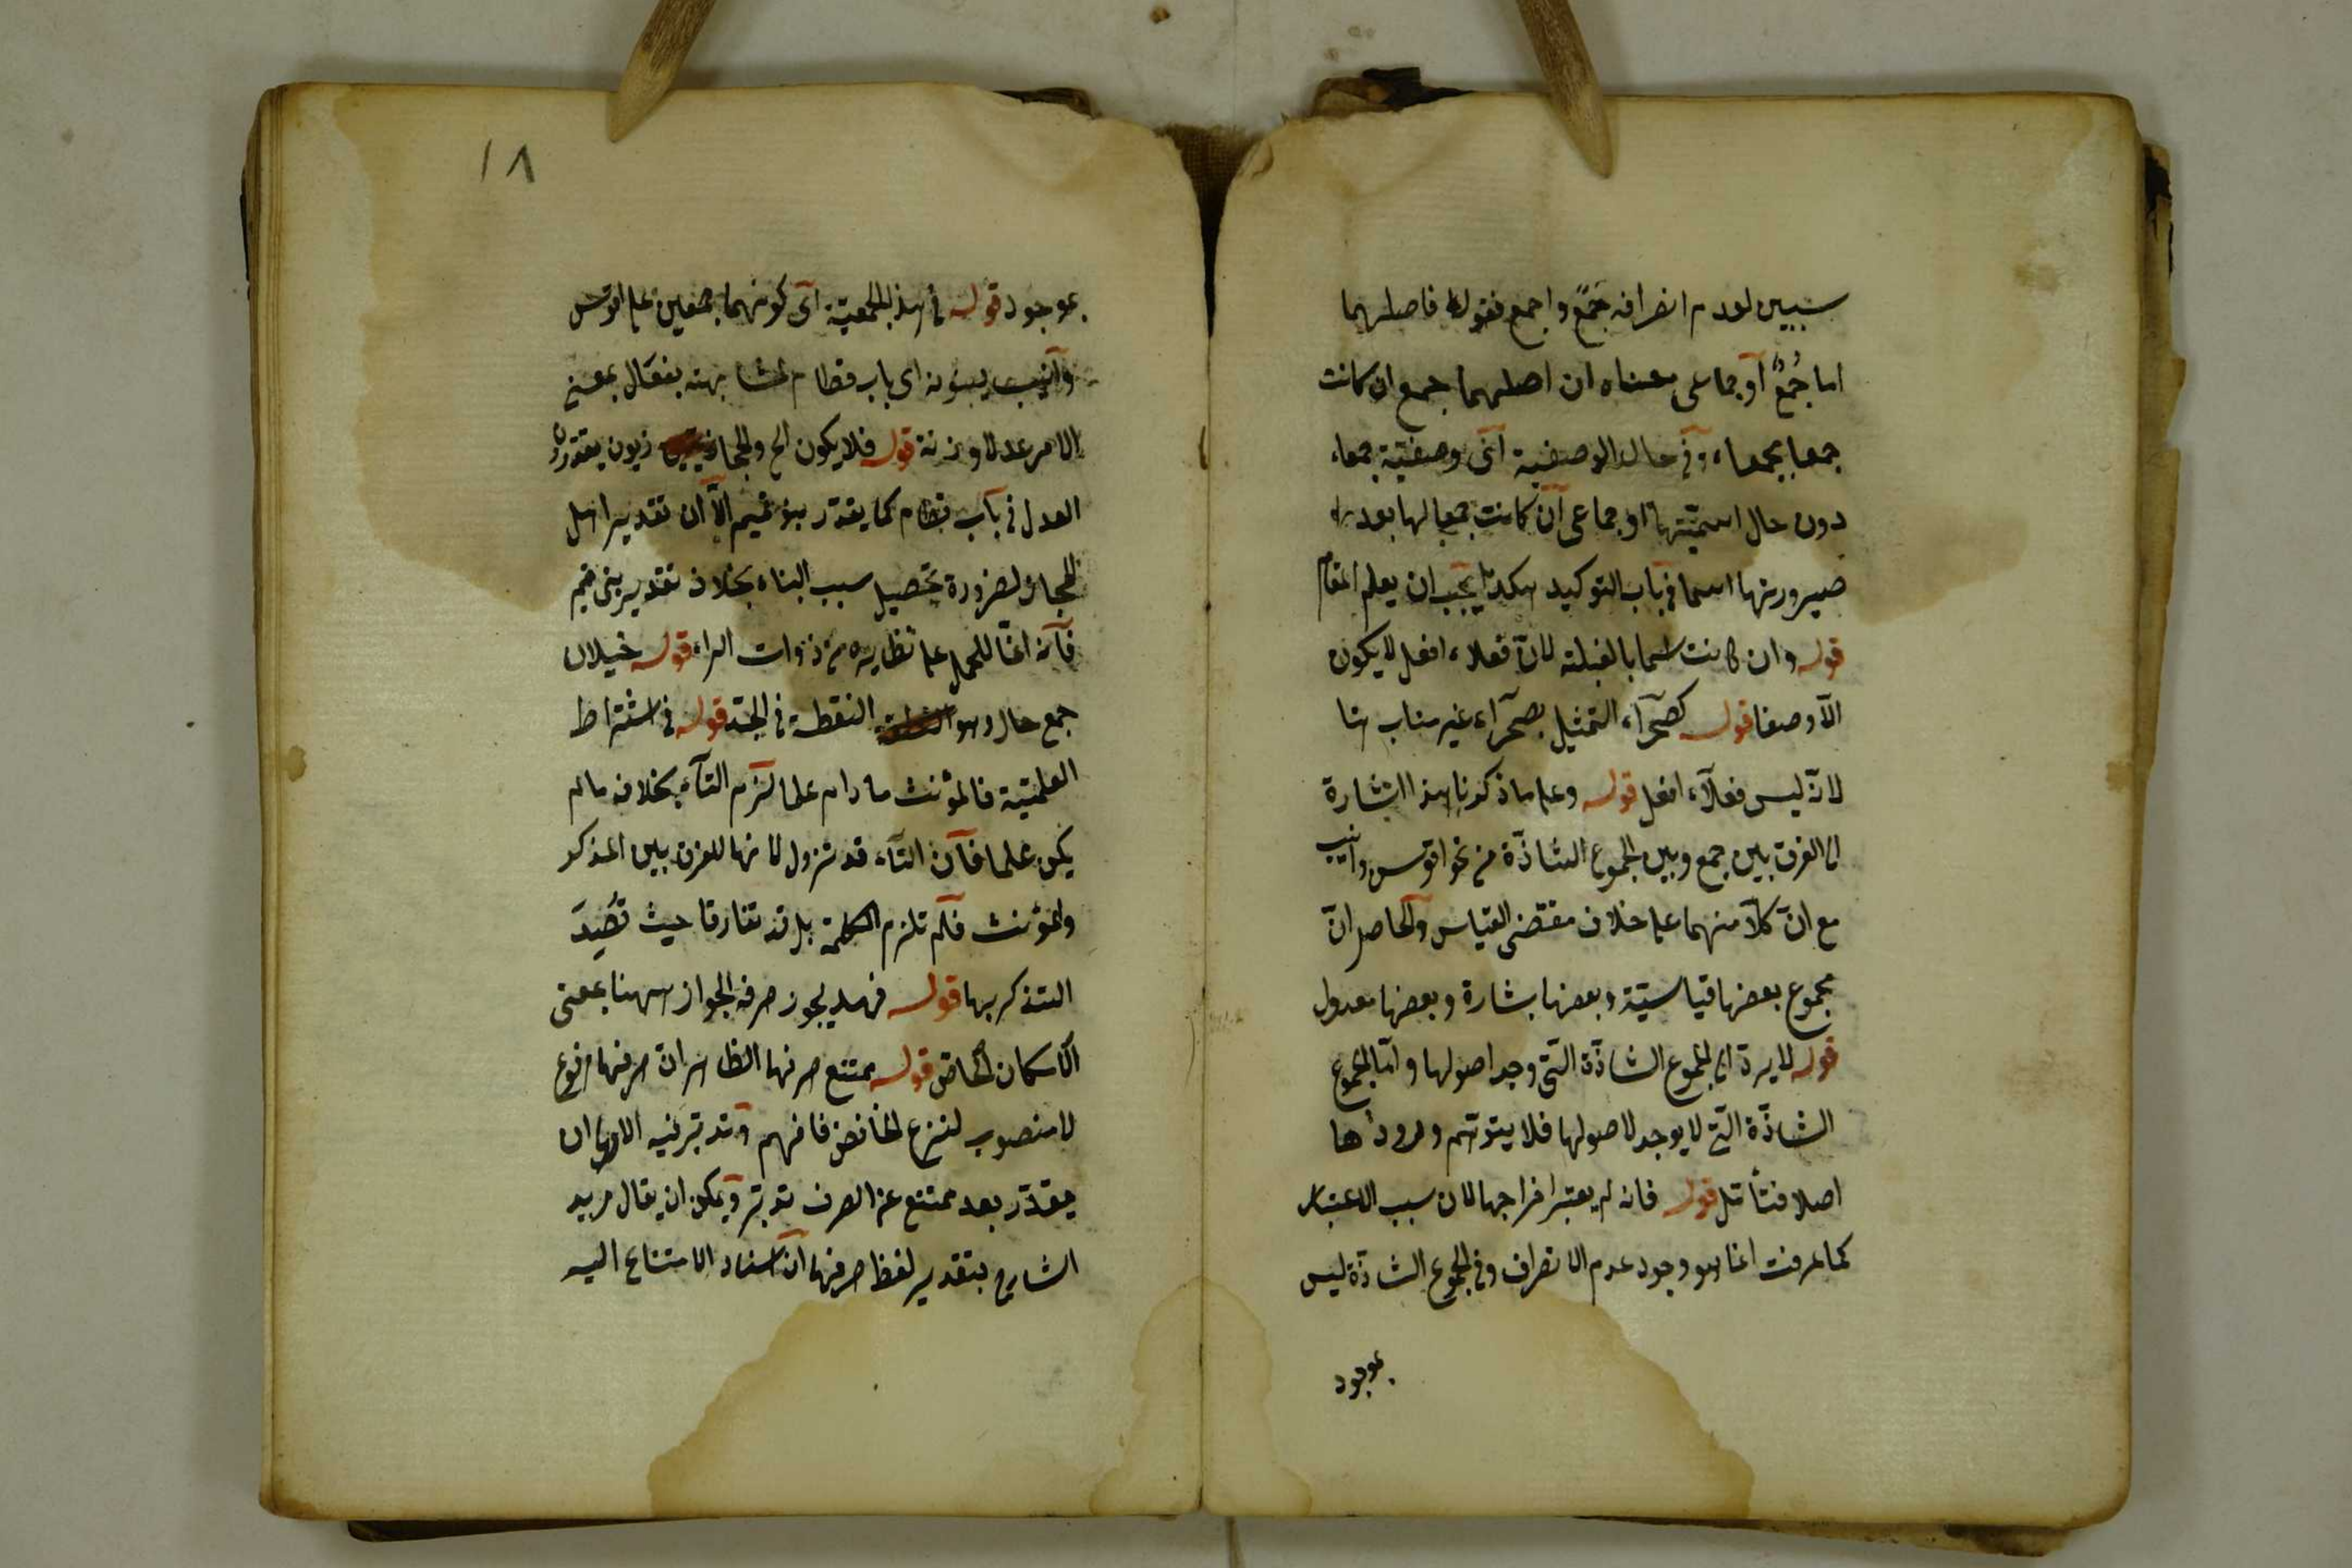 سببين لعدم انصرافه جُمَعَ واجمع فقوله فاصلهما
اما جُمْعٌ او جماعى معناه ان اصلهما جمع ان كانت
جمعا لجمعاء فى حال الوصفية اى وصفيّة جمعاء
دون حال اسميّتها او جماعى ان كانت جمعا لها بعد
صيرورتها اسما فى باب التوكيد هكذا يجب ان يعلم المقام
قوله وان كانت اسما بالغلبة لانّ فعلاء افعل لا يكون
الّا وصفا قوله كصحراء التمثيل بصحراء غير مناسب هنا
لانّه ليس فعلاء افعل قوله وعلى ما ذكرنا هذا اشارة
الى الفرق بين جمع وبين الجموع الشاذّة من نحو اقوس وانيب
مع انّ كلّا منهما على خلاف مقتضى القياس والحاصل انّ
مجموع بعضها قياسيّة وبعضها بشارة وبعضها معدول
قوله لا يرد اى الجموع الشاذّة الّتى وجد اصولها وامّا الجموع
الشاذّة الّتى لا يوجد لاصولها فلا يتوهّم ورودها
اصلا فتأمّل قوله فانه لم يعتبر اخراجها لان سبب الاعتبار
كما عرفت انما هو وجود عدم الانصراف وفى الجموع الشاذّة ليس
بموجود
١٨
بموجود قوله فى هذه الجمعيّة اى كونهما جمعين على اقوس
وانيب اى باب قطام لمشابهته بفعال بمعنى
الامر عدلا وزنة قوله فلا يكون الخ والحجازيّون يقدّرون
العدل فى باب قطام كما يقدّر بنو تميم الّا ان تقدير اهل
الحجاز لضرورة تحصيل سبب البناء بخلاف تقدير بنى تميم
فانه انّما للحمل على نظايره من ذوات الراء قوله خيلان
جمع خال وهو النقطة فى الجسد قوله فى اشتراط
العلميّة فالمؤنث ما دام علما لزم التاء بخلافه ما لم
يكن علما فان التاء قد تزول لانها للفرق بين المذكر
والمؤنث فلم تلزم الكلمة بل قد تفارقا حيث قُصِدَ
التذكير بها قوله فهند يجوز صرفه الجواز ههنا بمعنى
الامكان الخاص قوله ممتنع صرفها الظاهر ان صرفها مرفوع
لا منصوب لنزع الخافض فافهم وتدبّر فيه الاولى ان
يقدّر بعد ممتنع عن الصرف تدبّر ويمكن ان يقال مريد
الشارح بتقدير لفظ صرفها ان اسناد الامتناع اليه